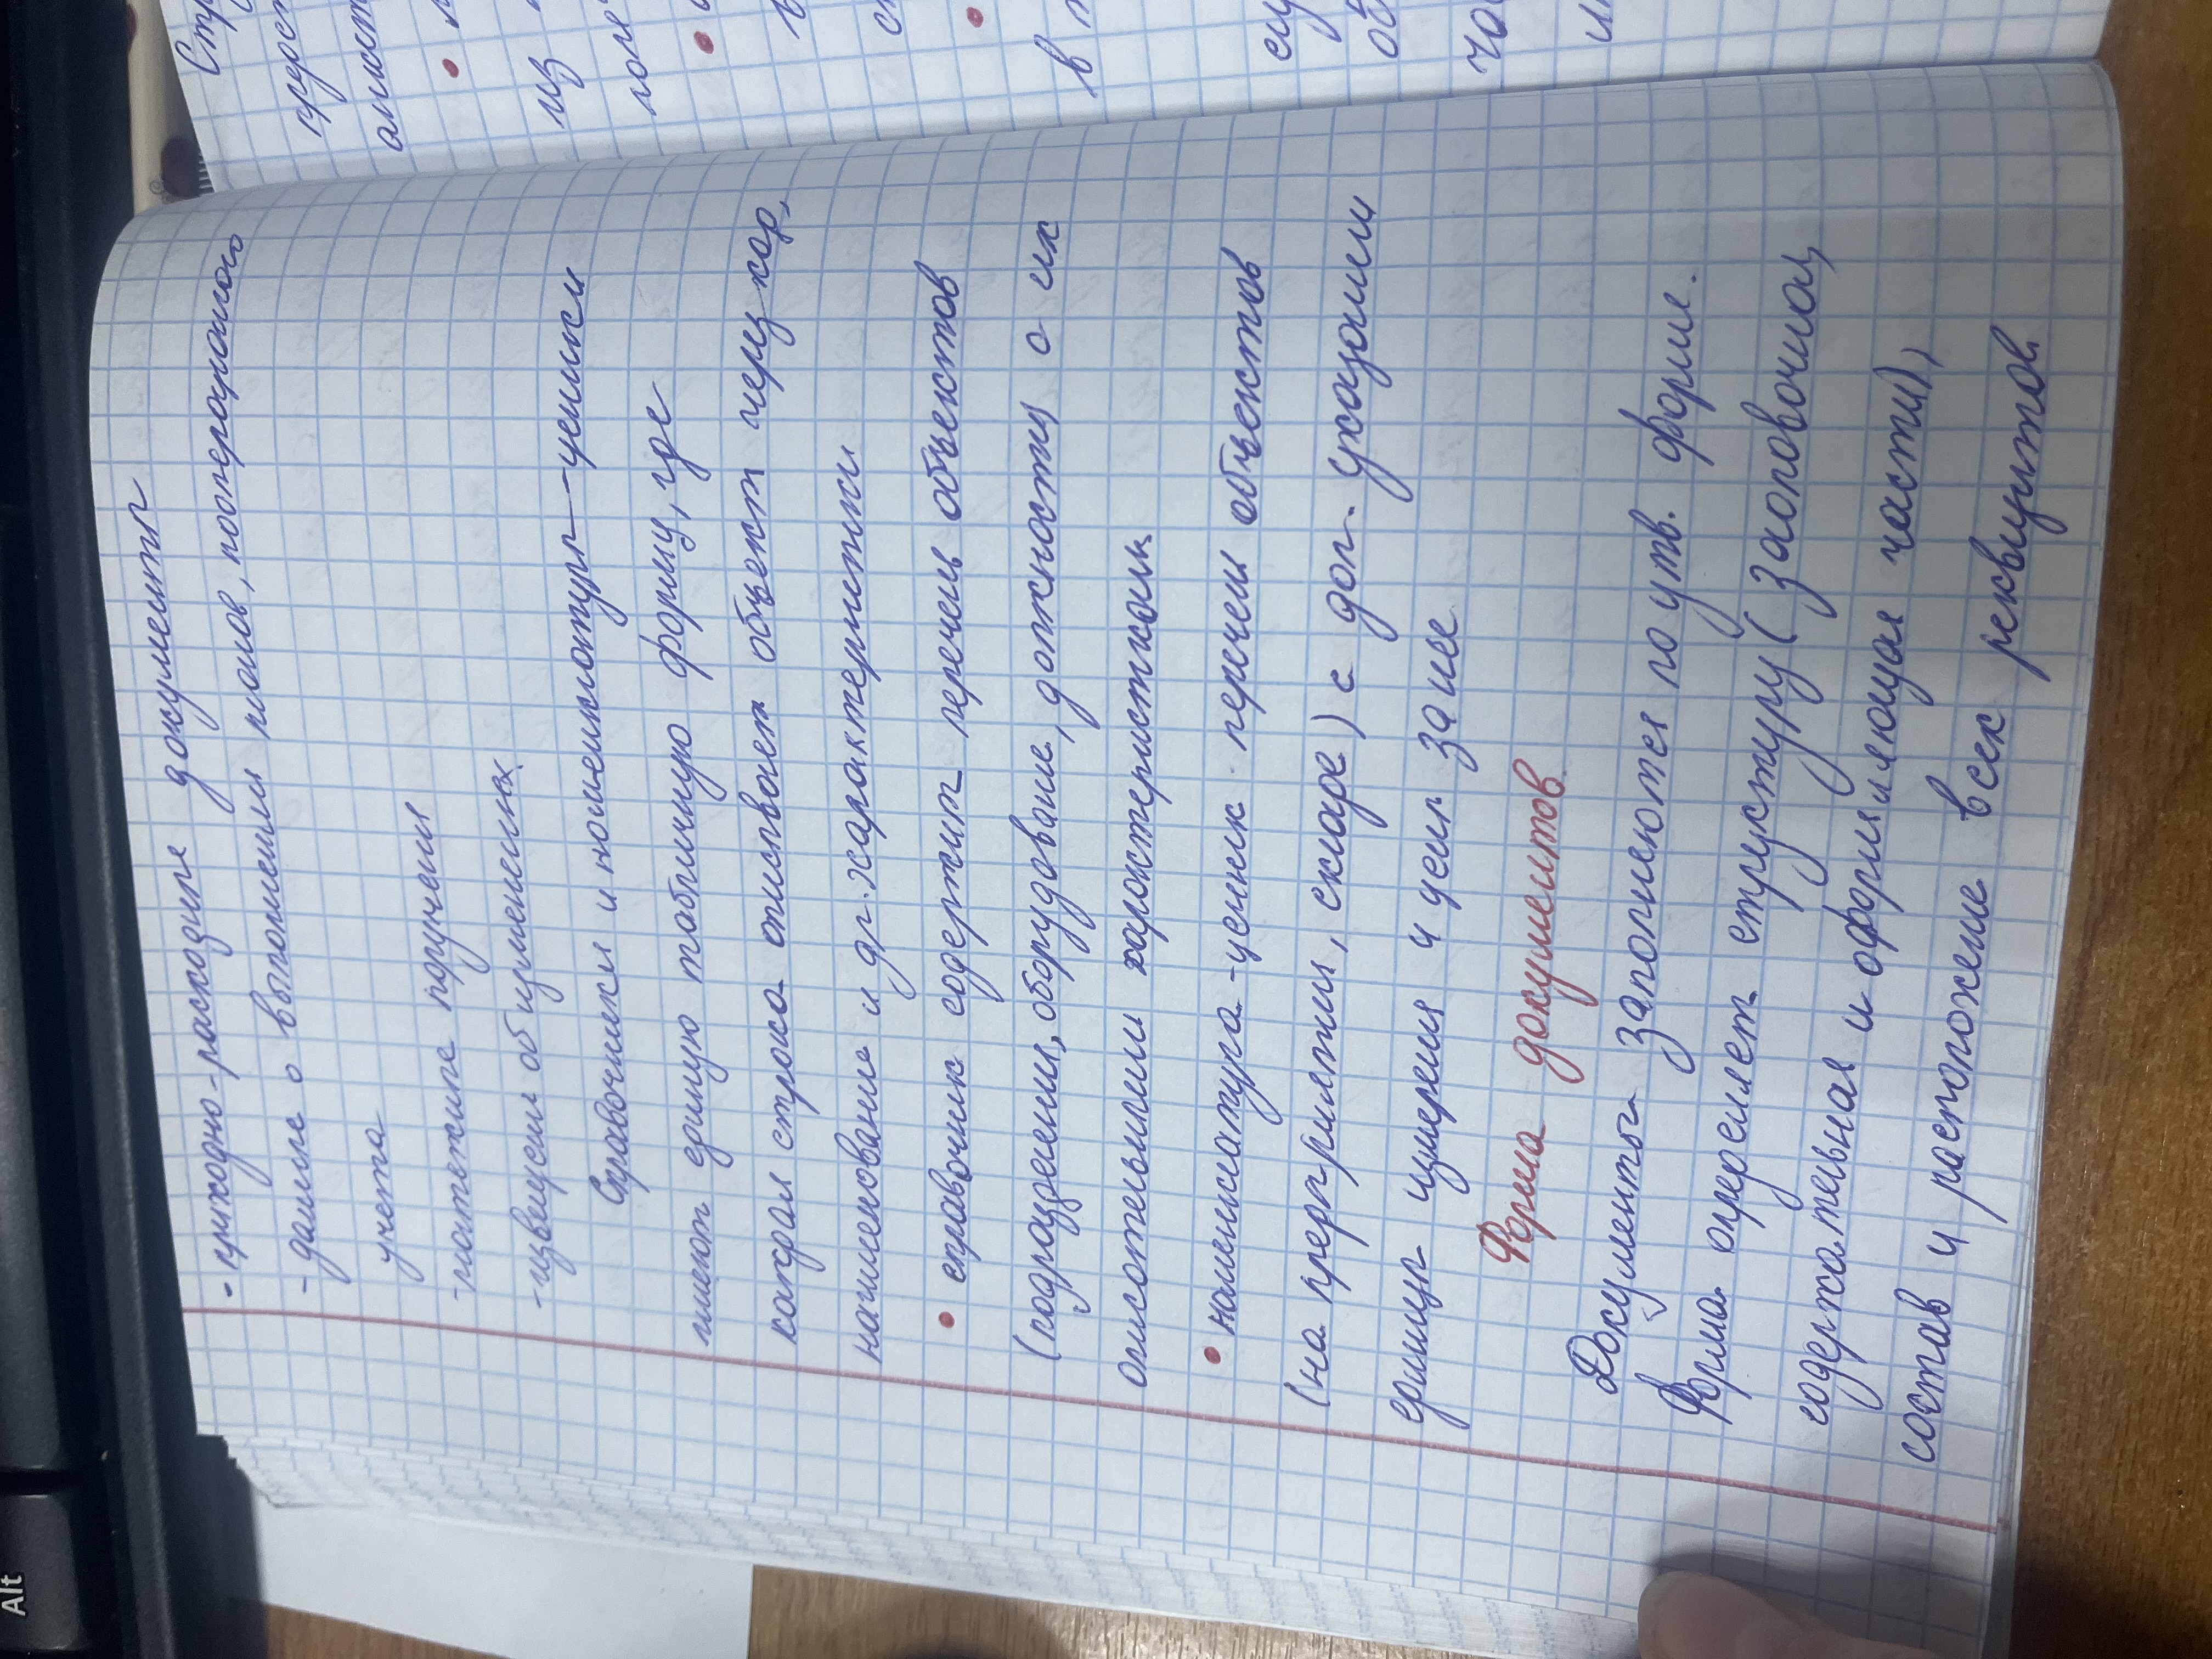 - приходно-расходные документы
- данные о выполнении планов, пооперационного
учета
- платежные поручения
- извещения об изменениях
Справочники и номенклатуры-ценники
имеют единую табличную форму, где
каждая строка описывает объект через код,
наименование и др. характеристики
• справочник содержит перечень объектов
(подразделения, оборудование, должности) с их
описательными характеристиками
• номенклатура-ценник перечень объектов
(на предприятии, складе) с доп. указанием
единиц измерения и цены за нее
Форма документов
Документы заполняются по утв. форме.
Форма определяет структуру (заголовочная,
содержательная и оформляющая части),
состав и расположение всех реквизитов.
Alt